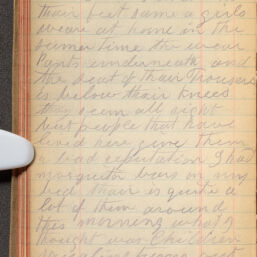 their feet same a girls
weare at home in the
sumer time the wear
Pants underneath and
the seat of thair Trousers
is below thair Knees
they seem all right
but people that have
lived here give them
a bad reputation I had
mosquito bars on my
bed thair is quite a
lot of them around
this morning what I
thought was Children